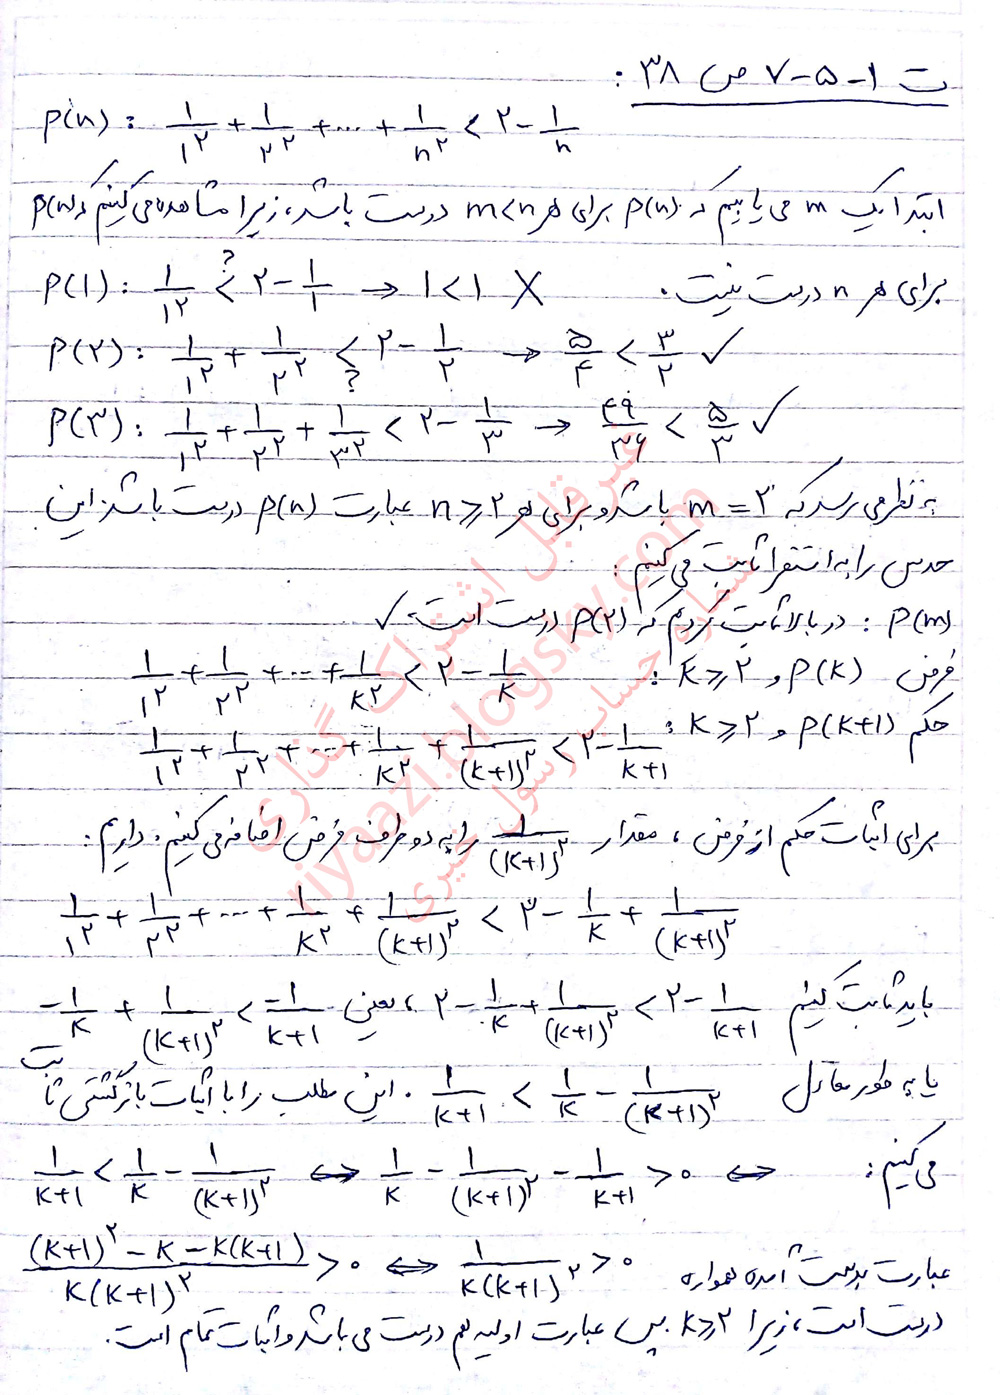 ت ۱-۵-۷ ص ۳۸ :
P(n) : ۱/۱² + ۱/۲² + ... + ۱/n² < ۲ - ۱/n
ابتدا یک m می یابیم که P(n) برای هر m<n درست باشد، زیرا مشاهده می کنیم که P(n)
برای هر n درست نیست.
P(1) : ۱/۱² <? ۲ - ۱/۱ → ۱<۱ X
P(۲) : ۱/۱² + ۱/۲² <? ۲ - ۱/۲ → ۵/۴ < ۳/۲ ✓
P(۳) : ۱/۱² + ۱/۲² + ۱/۳² < ۲ - ۱/۳ → ۴۹/۳۶ < ۵/۳ ✓
به نظر می رسد که m = ۲ باشد و برای هر n ≥ ۲ عبارت P(n) درست باشد. این
حدس را به استقرا ثابت می کنیم :
P(m) : در بالا ثابت کردیم که P(۲) درست است. ✓
فرض P(k) و k ≥ ۲ : ۱/۱² + ۱/۲² + ... + ۱/k² < ۲ - ۱/k
حکم P(k+1) و k ≥ ۲ : ۱/۱² + ۱/۲² + ... + ۱/k² + ۱/(k+1)² < ۲ - ۱/k+1
برای اثبات حکم از فرض ، مقدار ۱/(k+1)² را به دو طرف فرض اضافه می کنیم. داریم :
۱/۱² + ۱/۲² + ... + ۱/k² + ۱/(k+1)² < ۲ - ۱/k + ۱/(k+1)²
باید ثابت کنیم ۲ - ۱/k + ۱/(k+1)² < ۲ - ۱/k+1 ، یعنی -۱/k + ۱/(k+1)² < -۱/k+1
یا به طور معادل ۱/k+1 < ۱/k - ۱/(k+1)² . این مطلب را با اثبات بازگشتی ثابت
می کنیم : ۱/k+1 < ۱/k - ۱/(k+1)² ⇔ ۱/k - ۱/(k+1)² - ۱/k+1 > ۰ ⇔
(k+1)² - k - k(k+1)/k(k+1)² > ۰ ⇔ ۱/k(k+1)² > ۰ عبارت بدست آمده همواره
درست است، زیرا k ≥ ۲. پس عبارت اولیه هم درست می باشد و اثبات تمام است.
غیر قابل اشتراک گذاری
riyaazi.blogsky.com
رسول خیری